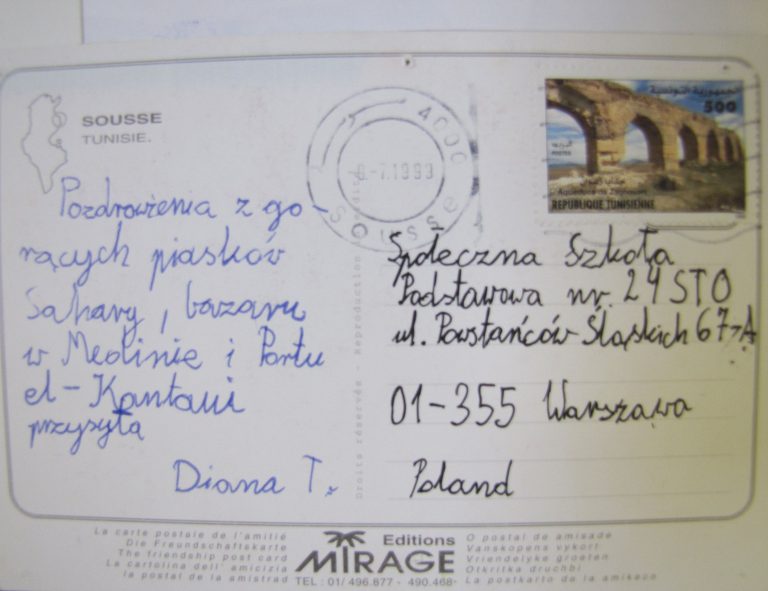 SOUSSE
TUNISIE.
Pozdrowienia z go-
rących piasków
Sahary, bazaru
w Medinie i Portu
el-Kantaui
przysyła
Diana T.
4000
9-7.1999
Sousse
الجمهورية التونسية
500
Aqueduc de Zaghouan
REPUBLIQUE TUNISIENNE
Społeczna Szkoła
Podstawowa nr. 24 STO
ul. Powstańców Śląskich 67A
01-355 Warszawa
Poland
Droits réservés - Reproduction interdite
La carte postale de l'amitié
Die Freundschaftskarte
The friendship post card
La cartolina dell' amicizia
la postal de la amistrad
Editions
MIRAGE
TEL : 01/ 496.877 - 490.468-
O postal de amisade
Vanskopens vykort
Vriendelyke groeten
Otkritka druchbi
La postkarto de la amikeco